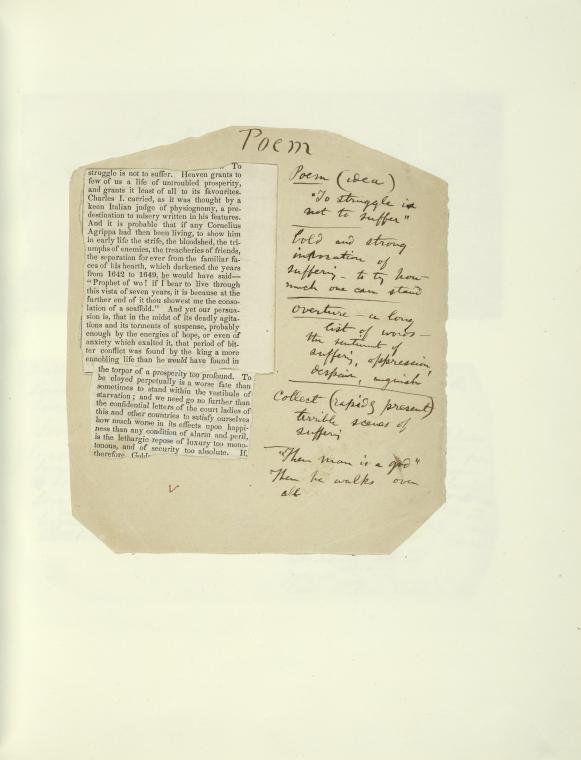 Poem
To
struggle is not to suffer. Heaven grants to
few of us a life of untroubled prosperity,
and grants it least of all to its favourites.
Charles I. carried, as it was thought by a
keen Italian judge of physiognomy, a pre-
destination to misery written in his features.
And it is probable that if any Cornelius
Agrippa had then been living, to show him
in early life the strife, the bloodshed, the tri-
umphs of enemies, the treacheries of friends,
the separation for ever from the familiar fa-
ces of his hearth, which darkened the years
from 1642 to 1649, he would have said—
"Prophet of wo! if I bear to live through
this vista of seven years, it is because at the
further end of it thou showest me the conso-
lation of a scaffold." And yet our persua-
sion is, that in the midst of its deadly agita-
tions and its torments of suspense, probably
enough by the energies of hope, or even of
anxiety which exalted it, that period of bit-
ter conflict was found by the king a more
ennobling life than he would have found in
the torpor of a prosperity too profound. To
be cloyed perpetually is a worse fate than
sometimes to stand within the vestibule of
starvation; and we need go no further than
the confidential letters of the court ladies of
this and other countries to satisfy ourselves
how much worse in its effects upon happi-
ness than any condition of alarm and peril,
is the lethargic repose of luxury too mono-
tonous, and of security too absolute. If,
therefore Gold-
Poem (idea)
"To struggle is
not to suffer"
Bold and strong
invocation of
suffering – to try how
much one can stand
overture – a long
list of words –
the sentiment of
suffering, oppression,
despair, anguish
Collect (rapidly present)
terrible scenes of
suffering
"Then man is a god"
Then he walks over
all